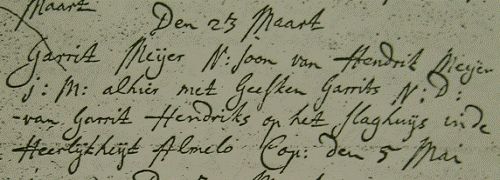 Maart
Den 23 Maart
Garrit Meijer N: soon van Hendrik Meijer
j: M: alhier met Geesken Garrits N: D:
van Garrit Hendriks op het slaghuijs inde
Heerlijkheijt Almelo Cop: den 5 Mai